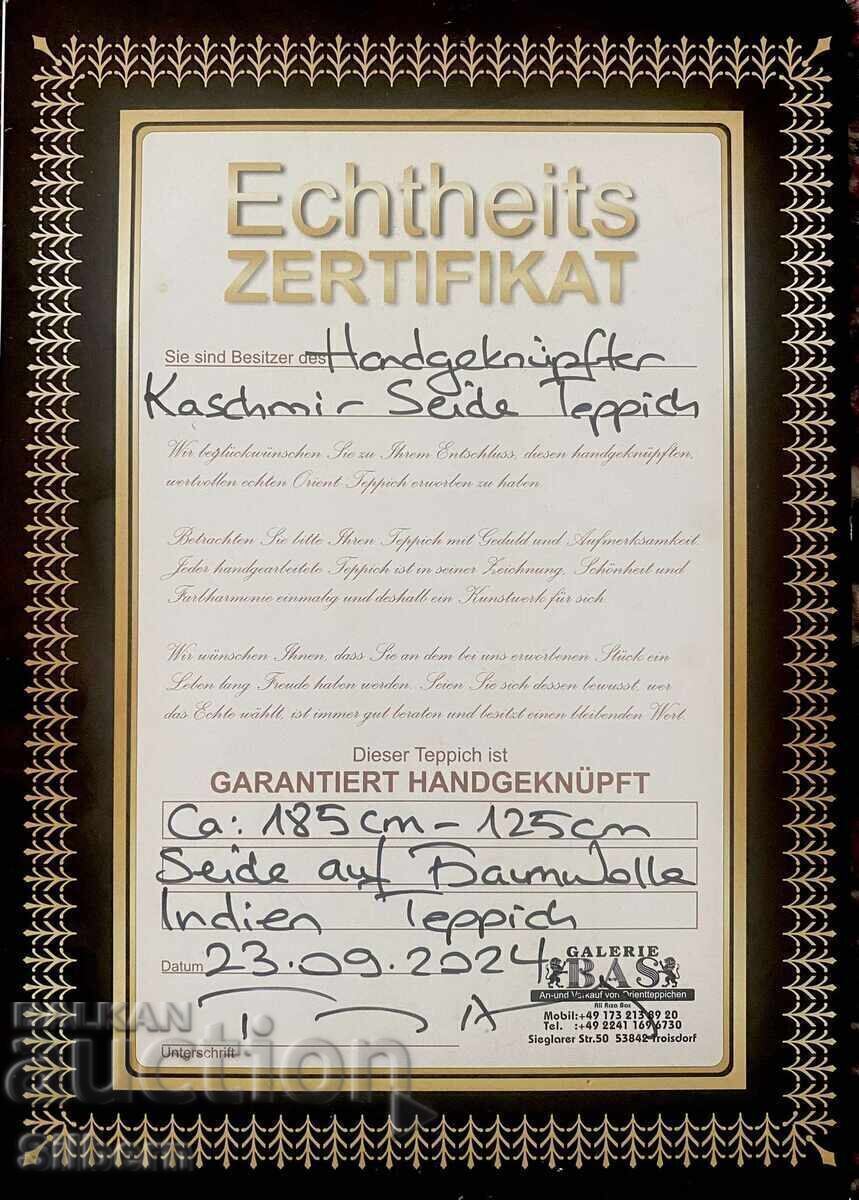 Echtheits
ZERTIFIKAT
Sie sind Besitzer des Handgeknüpfter
Kaschmir Seide Teppich
Wir beglückwünschen Sie zu Ihrem Entschluss, diesen handgeknüpften,
wertvollen echten Orient Teppich erworben zu haben.
Betrachten Sie bitte Ihren Teppich mit Geduld und Aufmerksamkeit.
Jeder handgearbeitete Teppich ist in seiner Zeichnung, Schönheit und
Farbharmonie einmalig und deshalb ein Kunstwerk für sich.
Wir wünschen Ihnen, dass Sie an dem bei uns erworbenen Stück ein
Leben lang Freude haben werden. Seien Sie sich dessen bewusst, wer
das Echte wählt, ist immer gut beraten und besitzt einen bleibenden Wert.
Dieser Teppich ist
GARANTIERT HANDGEKNÜPFT
Ca: 185cm - 125cm
Seide auf Baumwolle
Indien Teppich
Datum 23.09.2024
GALERIE
BAS
An-und Verkauf von Orientteppichen
Ali Riza Bas
Mobil:+49 173 213 89 20
Tel. :+49 2241 169 6730
Sieglarer Str.50 53842 Troisdorf
Unterschrift
BALKAN
auction